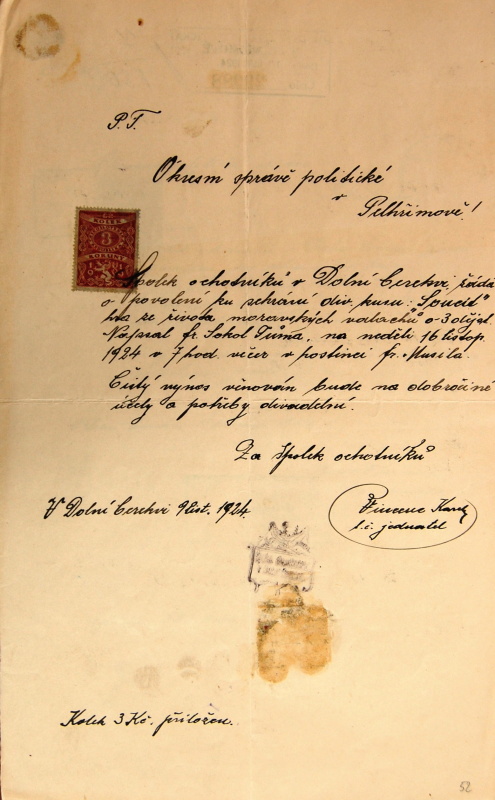 P.T.
Okresní správě politické
v
Pelhřimově!
KOLEK
3
KORUNY
Spolek ochotníků v Dolní Cerekvi žádá
o povolení ku sehrání div. kusu: „Soucit“
hra ze života moravských valachů o 3 dějst.
Napsal fr. Sokol Tůma, na neděli 16 listop.
1924 v 7 hod. večer v hostinci fr. Musila.
Čistý výnos věnován bude na dobročinné
účely a potřeby divadelní.
Za spolek ochotníků
V Dolní Cerekvi 9 list. 1924.
Vincenc
t.č. jednatel
Kolek 3 Kč. přiložen.
52